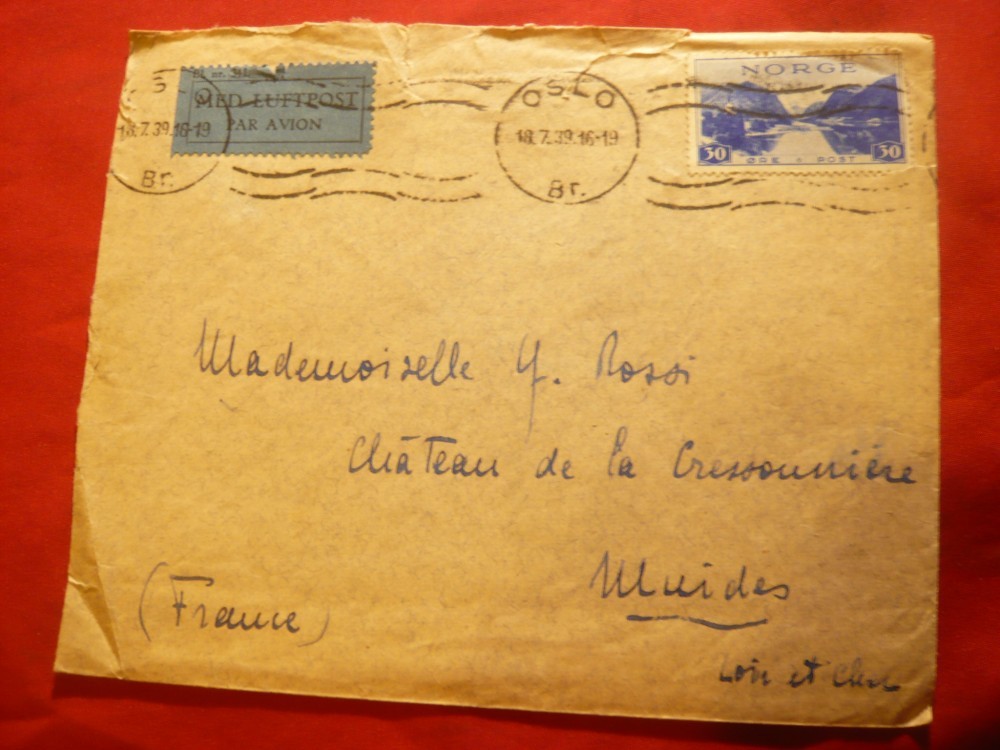 MED LUFTPOST
PAR AVION
18.7.39.16-19
Br.
OSLO
18.7.39.16-19
Br.
NORGE
30 ØRE A POST 30
Mademoiselle Y. Rossi
Château de la Cressonnière
Muides
(France)
Loir et Cher